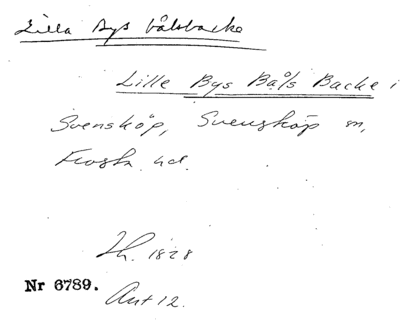 Lilla Bys bålsbacke
Lille Bys Båls Backe i
Svensköp, Svensköp sn,
Frosta hd.
Lh. 1828
Nr 6789.
Ant 12.